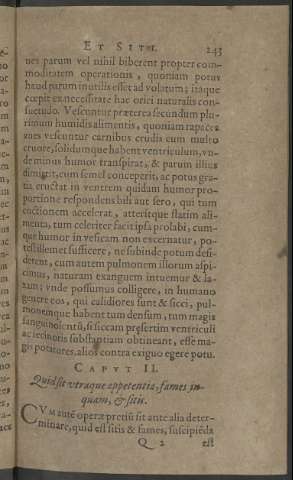 ET SITI. 243
nes parum vel nihil biberent propter com-
moditatem operationis, quoniam potus
haud parum inutilis esset ad volatum; itaque
cœpit ex necessitate hac orici naturalis con-
suetudo. Vescuntur præterea secundum plu-
rimum humidis alimentis, quoniam rapaces
aues vescuntur carnibus crudis cum multo
cruore, solidumque habent ventriculum, vn-
de minus humor transpirat, & parum illius
dimittit, cum semel conceperit, ac potus gra-
tia eructat in ventrem quidam humor pro-
portione respondens bili aut sero, qui tum
enctionem accelerat, atteritque statim ali-
menta, tum celeriter facit ipsa prolabi, cum-
que humor in vesicam non excernatur, po-
test illis met sufficere, ne subinde potum desi-
derent, cum autem pulmonem illorum aspi-
cimus, naturam exanguem intuemur & la-
xam; vnde possumus colligere, in humano
genere eos, qui calidiores sunt & sicci, pul-
monemque habent tum densum, tum magis
sanguinolentū, si siccam præsertim ventriculi
ac iecinoris substantiam obtineant, esse ma-
gis potatores, alios contra exiguo egere potu.
CAPVT II.
Quid sit vtraque appetentia, fames in-
quam, & sitis.
CVM autē operæ pretiū sit ante alia deter-
minare, quid est sitis & fames, suscipiēda
Q 2 est